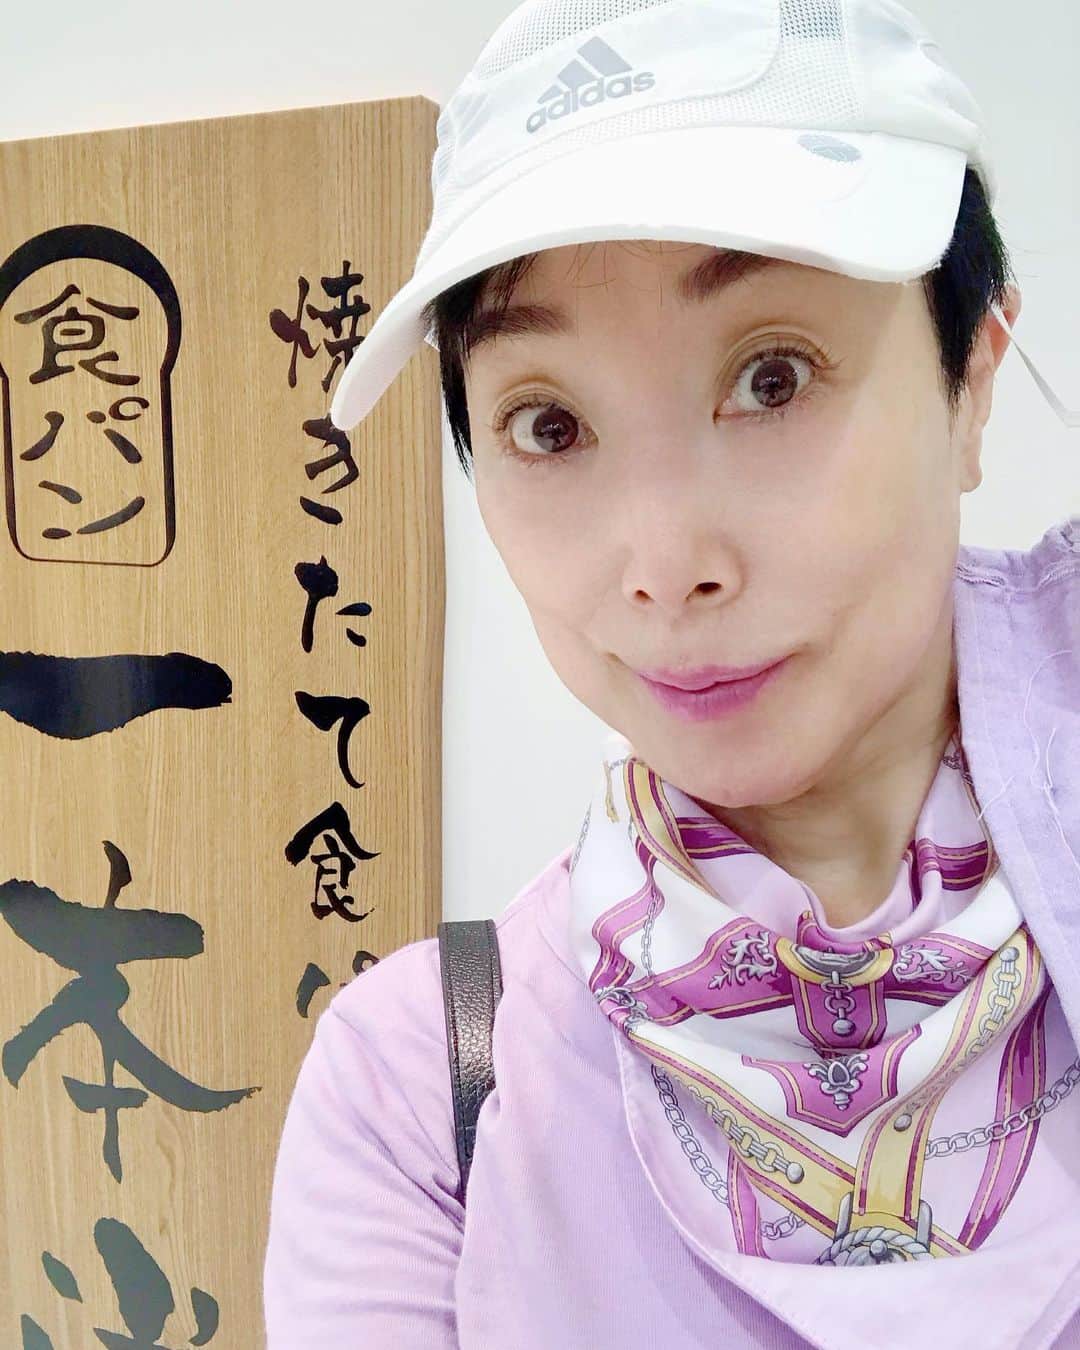 adidas
焼きたて食パ
食パン
一本